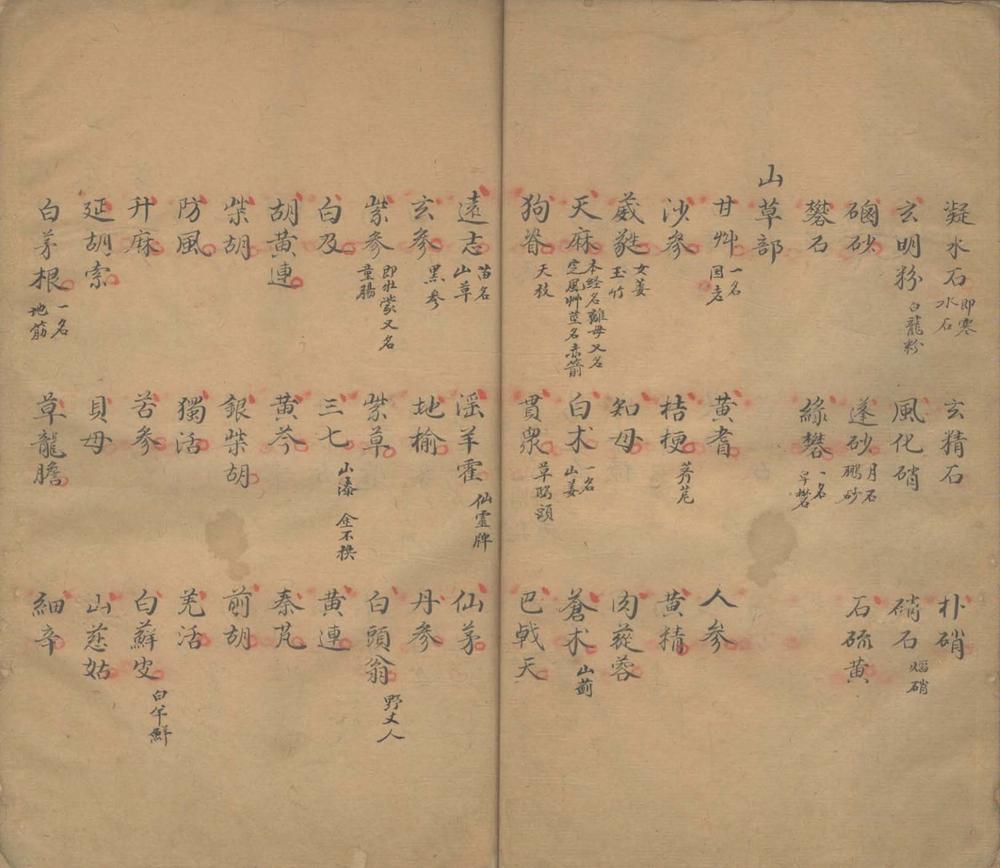 凝水石 即寒水石 玄精石 朴硝
玄明粉 白龍粉 風化硝 硝石 焰硝
硇砂 蓬砂 月石 鵬砂 石硫黄
礬石 綠礬 一名皁礬
山草部
甘艸 一名国老 黄耆 人參
沙參 桔梗 薺苨 黄精
葳蕤 女萎 玉竹 知母 肉蓯蓉
天麻 本經名離母又名定風艸莖名赤箭 白术 一名山姜 蒼术 山薊
狗脊 貫衆 草鴟頭 巴戟天
遠志 苗名山草 淫羊霍 仙靈牌 仙茅
玄參 黑參 地榆 丹參
紫參 即牡蒙又名童腸 紫草 白頭翁 野丈人
白及 三七 山漆 金不換 黄連
胡黄連 黄芩 秦艽
柴胡 銀柴胡 前胡
防風 獨活 羌活
升麻 苦參 白蘚皮 白羊鮮
延胡索 貝母 山慈姑
白茅根 一名地筋 草龍膽 細辛